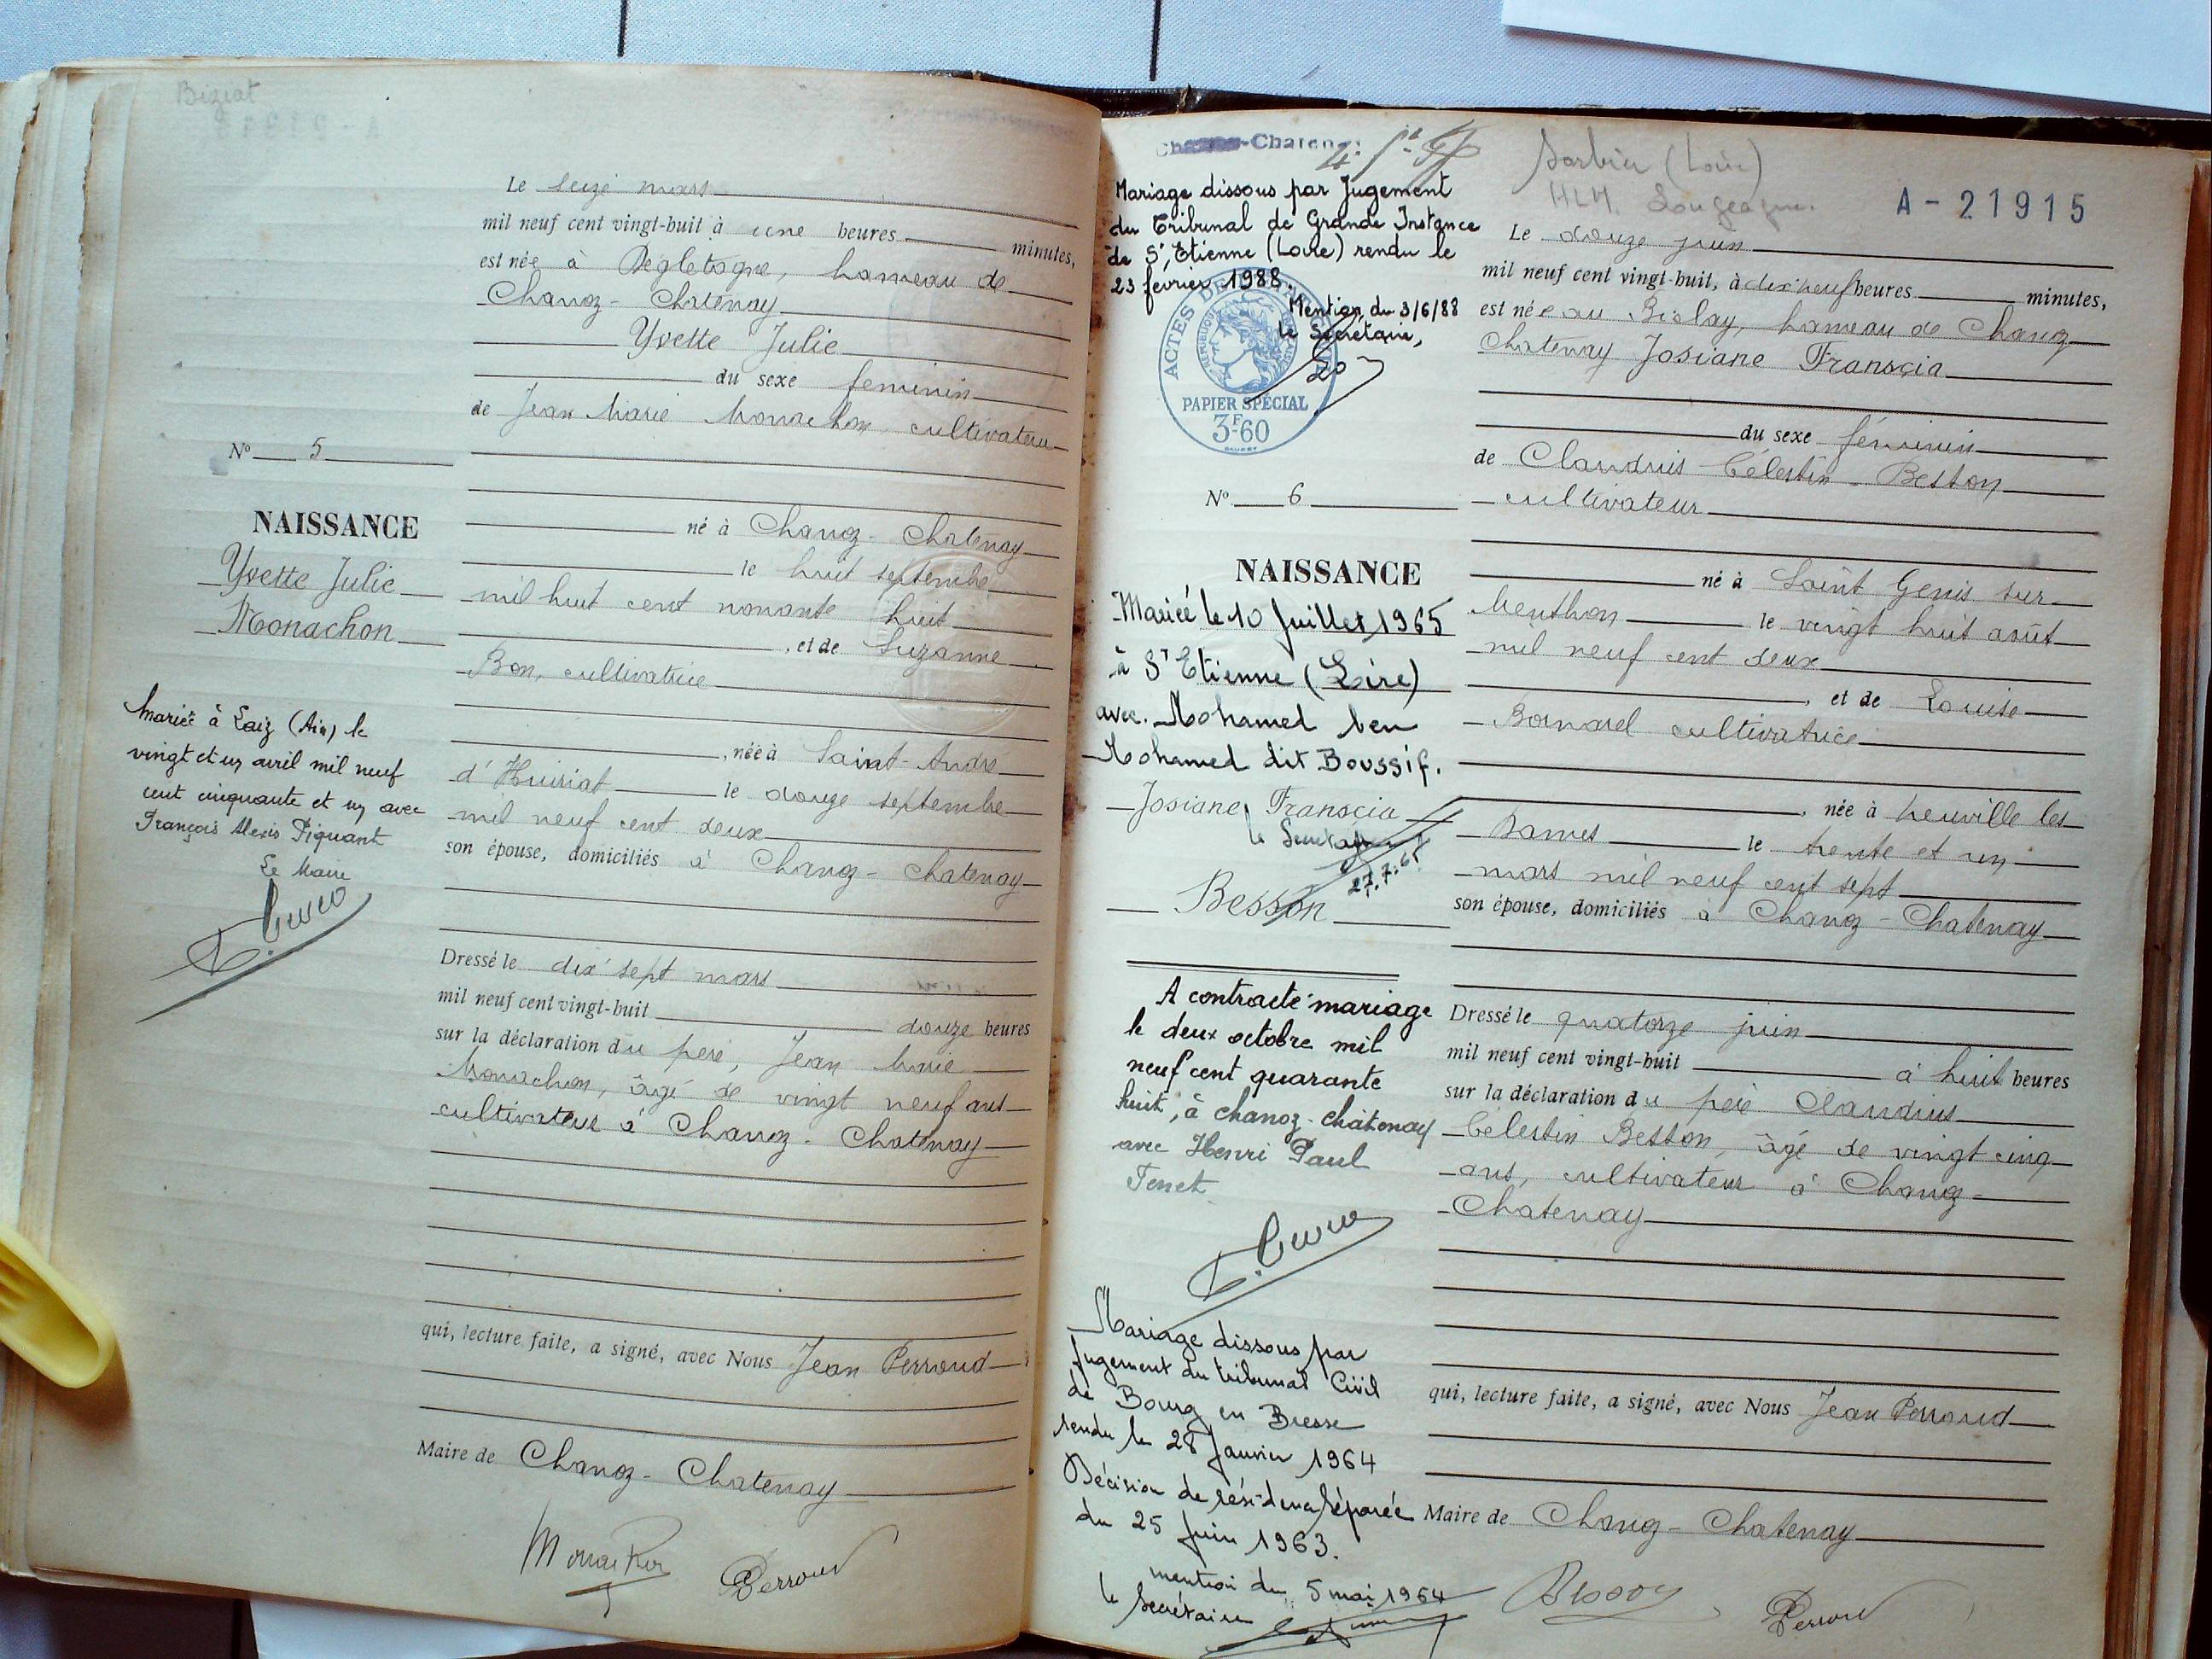 Biziat
Le seize mars
mil neuf cent vingt-huit à une heures minutes,
est née à Régletagne, hameau de
Chanoz - Chatenay
Yvette Julie
du sexe feminin
de Jean Marie Monachon cultivateur
N° 5
NAISSANCE
Yvette Julie
Monachon
né à Chanoz - Chatenay
le huit septembre
mil huit cent nonante huit
, et de Suzanne
Bon, cultivatrice
, née à Saint-Andre
d'Huiriat le douze septembre
mil neuf cent deux
son épouse, domiciliés à Chanoz - Chatenay
Mariée à Laiz (Ain) le
vingt et un avril mil neuf
cent cinquante et un avec
François Alexis Piquant
Le Maire
Dressé le dix sept mars
mil neuf cent vingt-huit douze heures
sur la déclaration du père, Jean Marie
Monachon, âgé de vingt neuf ans
cultivateur à Chanoz - Chatenay
qui, lecture faite, a signé, avec Nous Jean Perroud
Maire de Chanoz - Chatenay
Monachon
Perroud
-Chatenay
Sorbier (Loire)
HLM.
A - 21915
Mariage dissous par Jugement
du Tribunal de Grande Instance
de St Etienne (Loire) rendu le
23 février 1988.
Mention du 3/6/88
le Secrétaire,
PAPIER SPÉCIAL
3F60
Le douze juin
mil neuf cent vingt-huit, à dix neuf heures minutes,
est née au Biolay, hameau de Chanoz
Chatenay Josiane Franscia
du sexe féminin
de Claudius Célestin Besson
cultivateur
N° 6
NAISSANCE
Mariée le 10 Juillet 1965
à St Etienne (Loire)
avec Mohamed ben
Mohamed dit Boussif.
Josiane Franscia
le Secrétaire
27.7.65
Besson
né à Saint Genis sur-
Menthon le vingt huit août
mil neuf cent deux
, et de Louise
Bornarel cultivatrice
, née à Neuville les
Dames le trente et un
mars mil neuf cent sept
son épouse, domiciliés à Chanoz - Chatenay
A contracté mariage
le deux octobre mil
neuf cent quarante
huit, à Chanoz-Chatenay
avec Henri Paul
Tenet
Dressé le quatorze juin
mil neuf cent vingt-huit à huit heures
sur la déclaration du père Claudius
Célestin Besson, âgé de vingt cinq
ans, cultivateur à Chanoz-
Chatenay
Mariage dissous par
Jugement du tribunal Civil
de Bourg en Bresse
rendu le 28 Janvier 1964
Décision de résidence séparée
du 25 Juin 1963.
mention du 5 mai 1964
le Secrétaire
qui, lecture faite, a signé, avec Nous Jean Perroud
Maire de Chanoz - Chatenay
Besson
Perroud